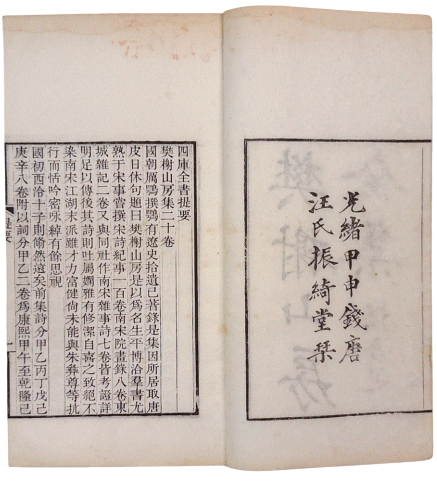 光緒甲申錢唐
汪氏振綺堂栞
四庫全書提要
樊榭山房集二十卷
國朝厲鶚撰鶚有遼史拾遺已著錄是集因所居取唐
皮日休句題曰樊榭山房是以爲名生平博洽羣書尤
熟于宋事嘗撰宋詩紀事一百卷南宋院畫錄八卷東
城雜記二卷又與同社作南宋雜事詩七卷皆考證詳
明足以傳後其詩則吐屬嫻雅有修潔自喜之致絕不
染南宋江湖末派雖才力富健尚未能與朱彝尊等抗
行而恬吟密咏綽有餘思視
國初西泠十子則翛然遠矣前集詩分甲乙丙丁戊己
庚辛八卷附以詞分甲乙二卷爲康熙甲午至乾隆己
提要
一